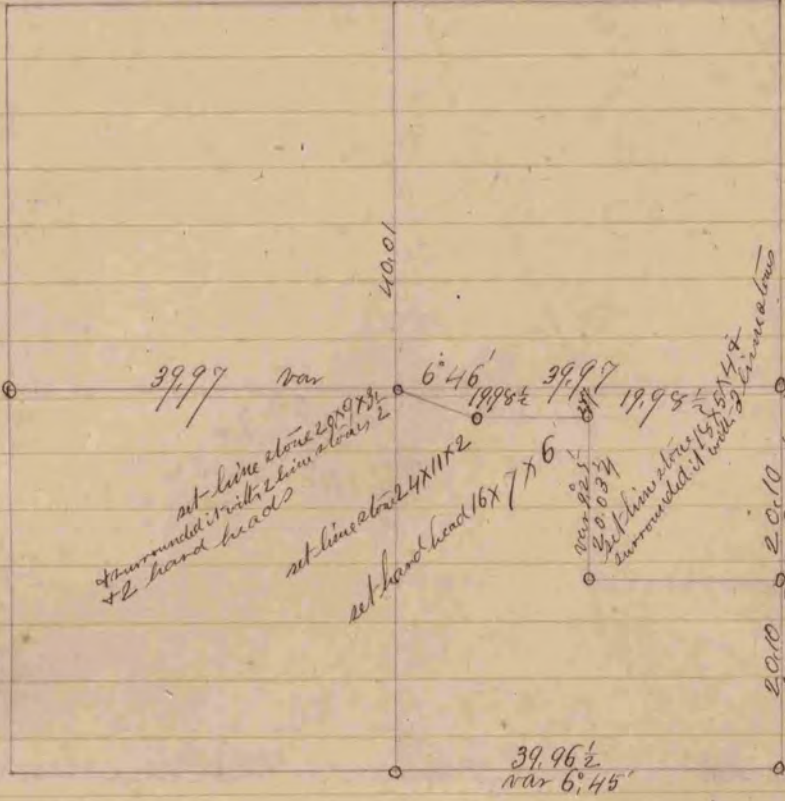 40.01
39,97 var 6° 46' 39,97
19,98½ 19,98½
set lime stone 20x9x3½
& surrounded it with 2 lime stones 2
+2 hard heads
set lime stone 24x11x2
set hard head 16x7x6
var 9° 25'
20.03¼
set lime stone 15x5x4½
surrounded it with 2 lime stones
20,10
20,10
39,96½
var 6° 45'